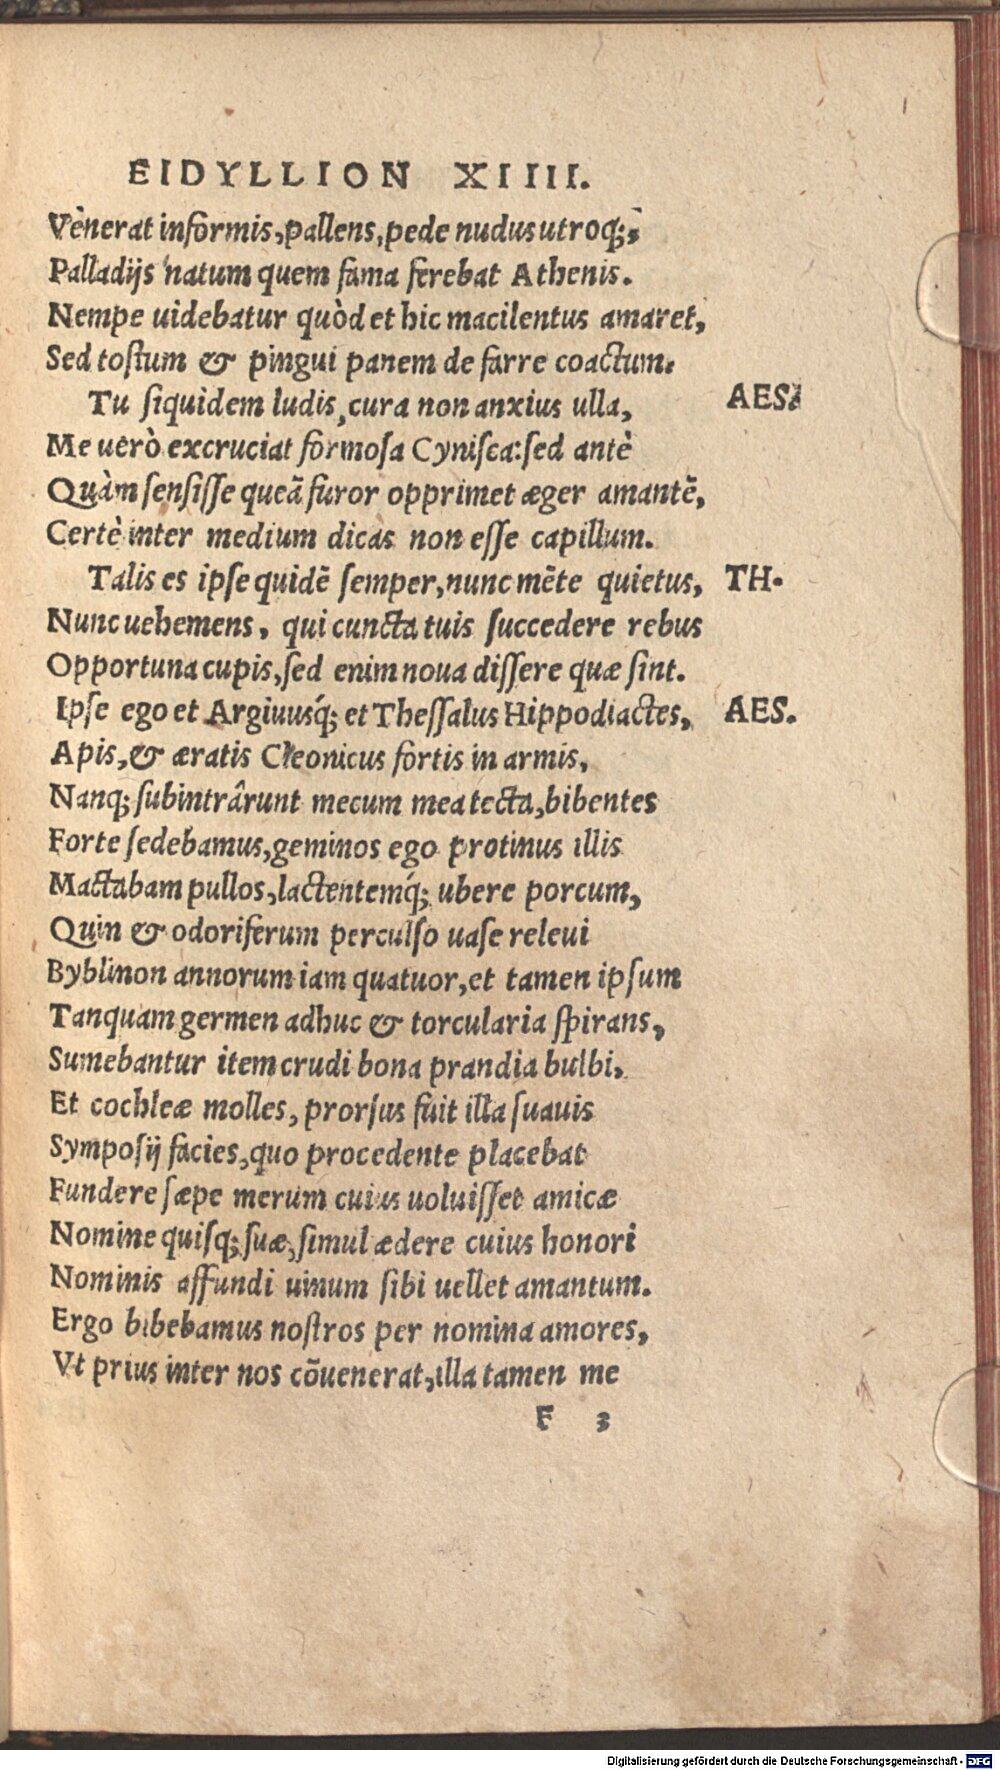 EIDYLLION XIIII.
Vènerat informis, pallens, pede nudus utroq́;,
Palladijs natum quem fama ferebat Athenis.
Nempe uidebatur quòd et hic macilentus amaret,
Sed tostum & pingui panem de farre coactum.
Tu siquidem ludis, cura non anxius ulla, AES.
Me uerò excruciat formosa Cynisca: sed antè
Quàm sensisse queã furor opprimet æger amantẽ,
Certè inter medium dicas non esse capillum.
Talis es ipse quidẽ semper, nunc mẽte quietus, TH.
Nunc uehemens, qui cuncta tuis succedere rebus
Opportuna cupis, sed enim noua dissere quæ sint.
Ipse ego et Argiuusq́; et Thessalus Hippodiactes, AES.
Apis, & æratis Cleonicus fortis in armis,
Nanq; subintrârunt mecum mea tecta, bibentes
Forte sedebamus, geminos ego protinus illis
Mactabam pullos, lactentemq́; ubere porcum,
Quin & odoriferum perculso uase releui
Byblinon annorum iam quatuor, et tamen ipsum
Tanquam germen adhuc & torcularia spirans,
Sumebantur item crudi bona prandia bulbi,
Et cochleæ molles, prorsus fuit illa suauis
Symposij facies, quo procedente placebat
Fundere sæpe merum cuius uoluisset amicæ
Nomine quisq; suæ, simul ædere cuius honori
Nominis affundi uinum sibi uellet amantum.
Ergo bibebamus nostros per nomina amores,
Vt prius inter nos cõuenerat, illa tamen me
F 3
Digitalisierung gefördert durch die Deutsche Forschungsgemeinschaft - DFG